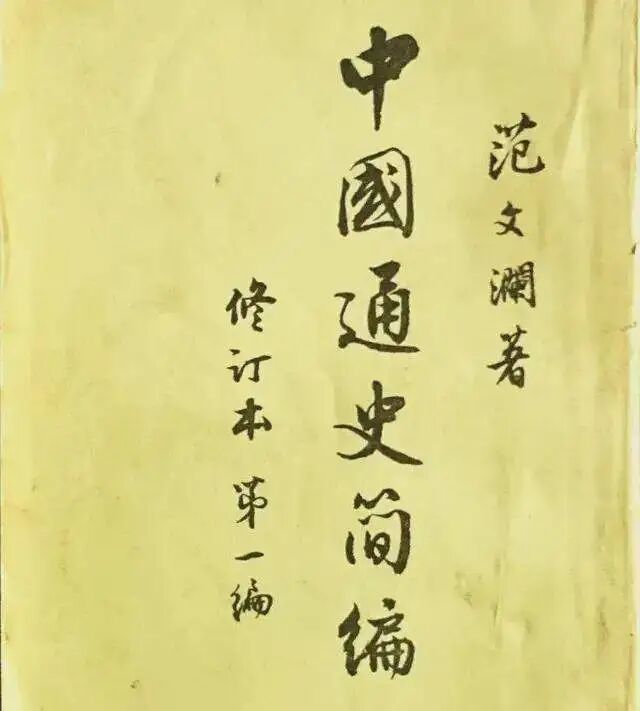 范文瀾著
中國通史简编
修订本 第一编